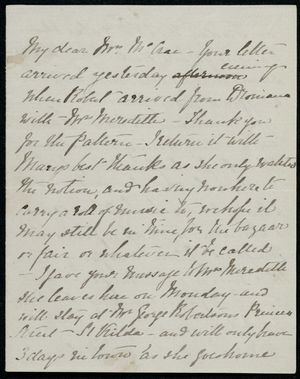 My dear Mrs McCrae - Your letter
evening
arrived yesterday afternoon
when Robert arrived from
with Mrs Meredith - Thank you
for the pattern - I return it with
Mary's best thanks as she only wanted
the notion, and having nowhere to
carry a roll of music to, we hope it
may still be in time for the bazaar
or fair or whatever it be called
- I gave your message to Mrs Meredith
she leaves here on Monday - and
will stay at Mrs George Robertsons Princes
Street - St Kilda - and will only have
3 days in town as she goes home